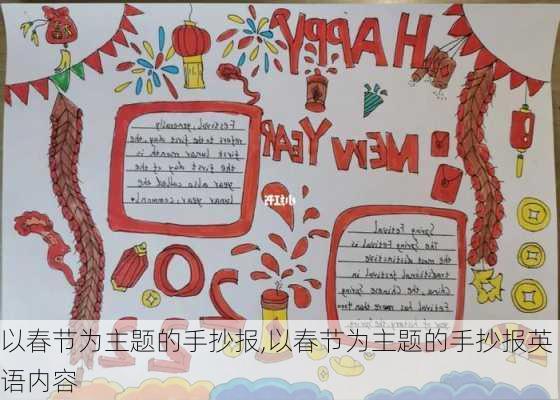 HAPPY
NEW YEAR
Festival, generally
refers to the first day, the
first lunar month is
the first day of the
year also called the
lunar year, commonly
Spring Festival
The Spring Festival is
the most distinctive
traditional festival in
China, the Chinese Spring
Festival has more than
year of history The Spring
以春节为主题的手抄报,以春节为主题的手抄报英
语内容